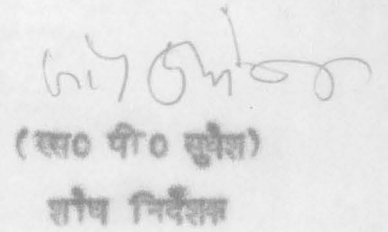 (एस० पी० सुवेश)
शोध निर्देशक